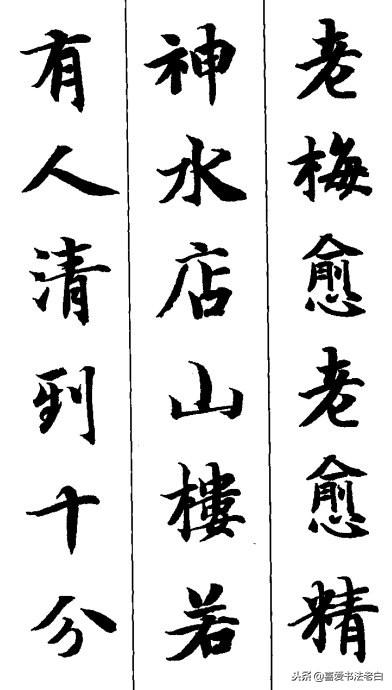 老梅愈老愈精
神水店山樓若
有人清到十分
头条@喜爱书法老白